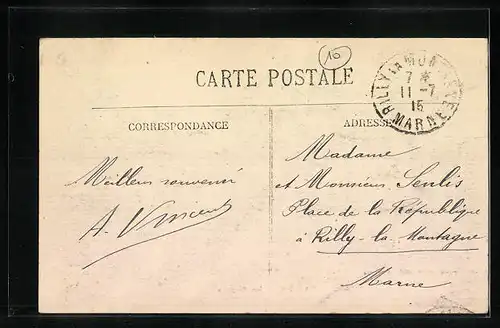 16
CARTE POSTALE
RILLY LA MONTAGNE
7 *
11 - 7
15
MARNE
CORRESPONDANCE
ADRESSE
Meilleur souvenir
A. Vincent
Madame
et Monsieur Senlis
Place de la République
à Rilly-la-Montagne
Marne